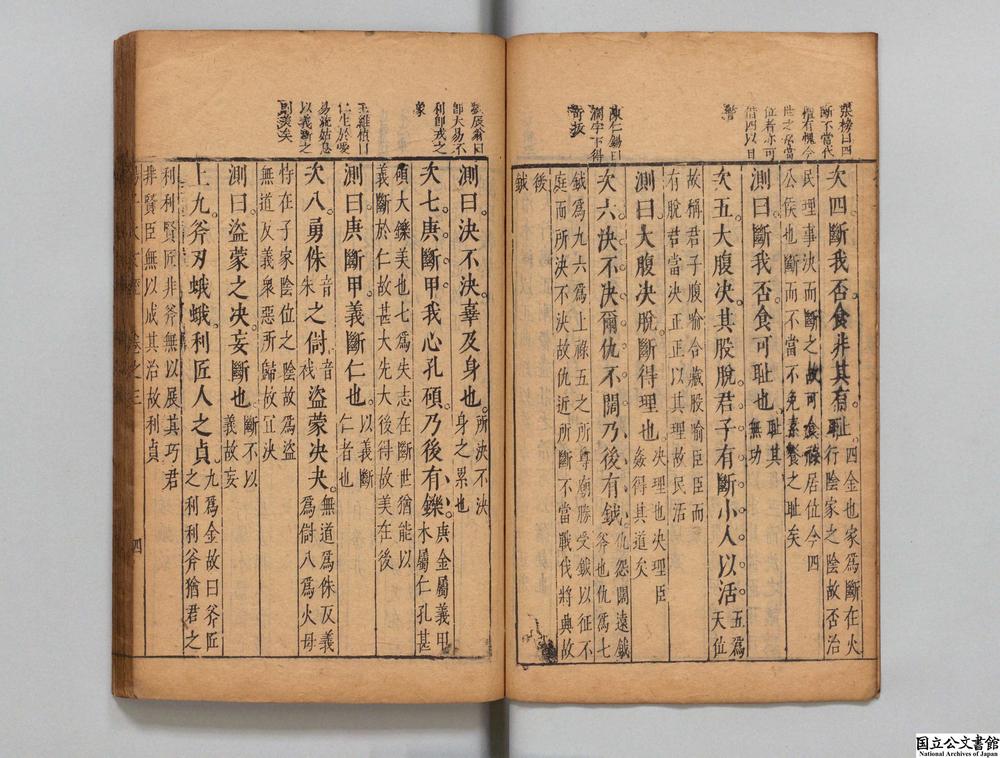 次四斷我否食非其有恥
四金也家爲斷在火
行陰家之陰故否治
民理事決而斷之故可食祿居位今四
公侯也斷而不當不免素餐之恥矣
測曰斷我否食可恥也
恥其
無功
次五大腹決其股脫君子有斷小人以活
五爲
天位
故稱君子腹喻合藏股喻臣臣而
有脫君當決正正以其理故民活
測曰大腹決脫斷得理也
決理也決理臣
姦得其道矣
次六決不決爾仇不闊乃後有鉞
仇怨闊遠鉞
斧也仇爲七
鉞爲九六爲上祿五之所尊廟勝受鉞以征不
庭而所決不決故仇近所斷不當戰伐將典故
後
鉞
張榜曰四
斷不當代
陳仁錫曰
濶字下得
奇拔
測曰決不決辜及身也
所決不決
身之累也
次七庚斷甲我心孔碩乃後有鑠
庚金屬義甲
木屬仁孔甚
碩大鑠美也七爲失志在斷世猶能以
義斷於仁故甚大先大後得故美在後
測曰庚斷甲義斷仁也
以義斷
仁者也
次八勇侏音朱之傠音伐盜蒙決夬
無道爲侏反義
爲傠八爲火母
恃在子家陰位之陰故爲盜
無道反義衆惡所歸故宜決
測曰盜蒙之決妄斷也
斷不以
義故妄
上九斧刃蛾蛾利匠人之貞
九爲金故曰斧匠
之利利斧猶君之
利利賢匠非斧無以展其巧君
非賢臣無以成其治故利貞
四
劉辰翁曰
師大易不
利卽戎之
象
王維楨曰
仁生於愛
易流姑息
以義斷之
則美矣
国立公文書館
National Archives of Japan